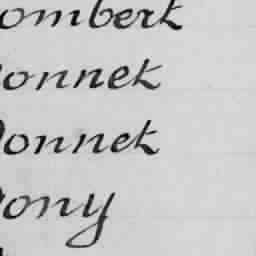 ombert
onnet
onnet
ony